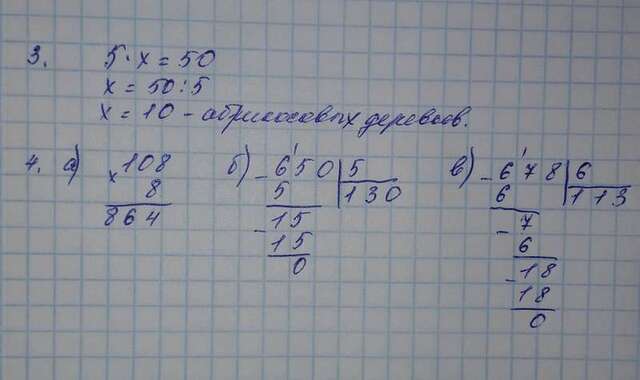 3. 5 · x = 50
x = 50 : 5
x = 10 - абрикосовых деревьев.
4. а) 108 б) 650 5 в) 678 6
× 8 - 5 130 - 6 113
864 15 7
- 15 - 6
0 18
- 18
0